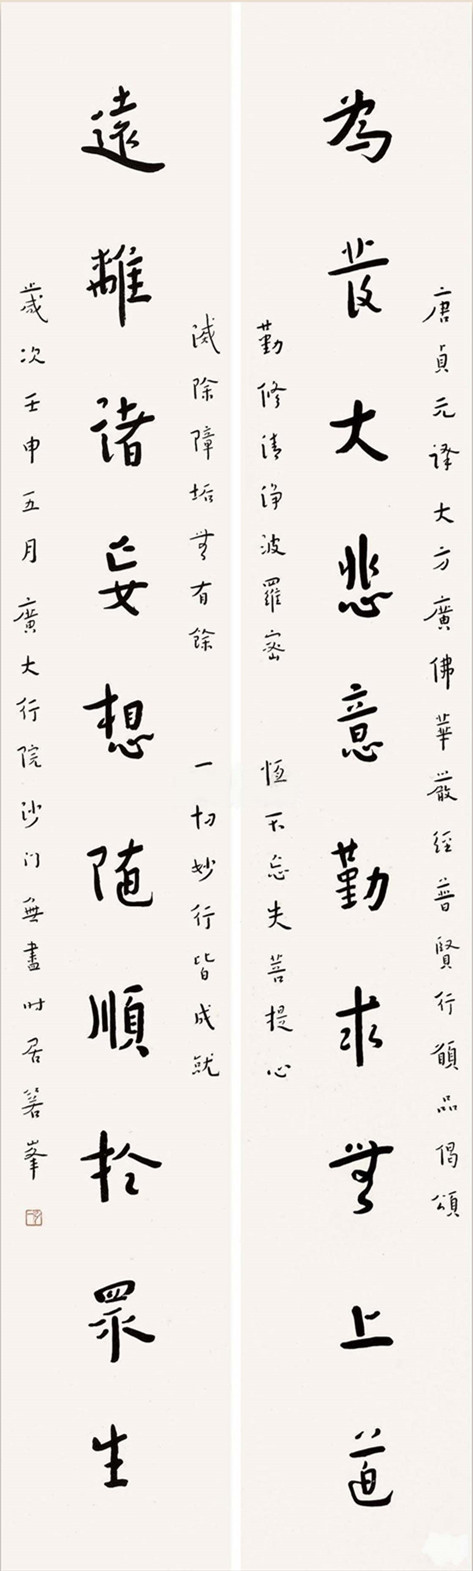 唐貞元譯大方廣佛華嚴經普賢行願品偈頌
為發大悲意勤求無上道
勤修清淨波羅密 恆不忘失菩提心
滅除障垢無有餘 一切妙行皆成就
遠離諸妄想隨順於眾生
歲次壬申五月廣大行院沙門無盡時居箬峯